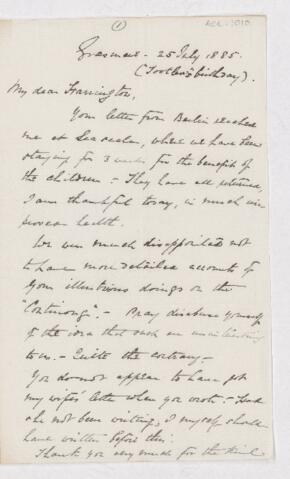 (1)
Grasmere - 25 July 1885.
(Tootles's birthday).
My dear Harrington,
Your letter from Berlin reached
me at Seascale, where we have been
staying for 3 weeks for the benefit of
the children - They have all returned,
I am thankful to say, in much im
proved health.
We were much disappointed not
to have more detailed accounts of
your illustrious doings on the
"Continong". - Pray disabuse yourself
of the idea that such are uninteresting
to us. - Quite the contrary -
You do not appear to have got
my wife's letter when you wrote - Had
she not been writing, I myself should
have written before this.
Thank you very much for the kind